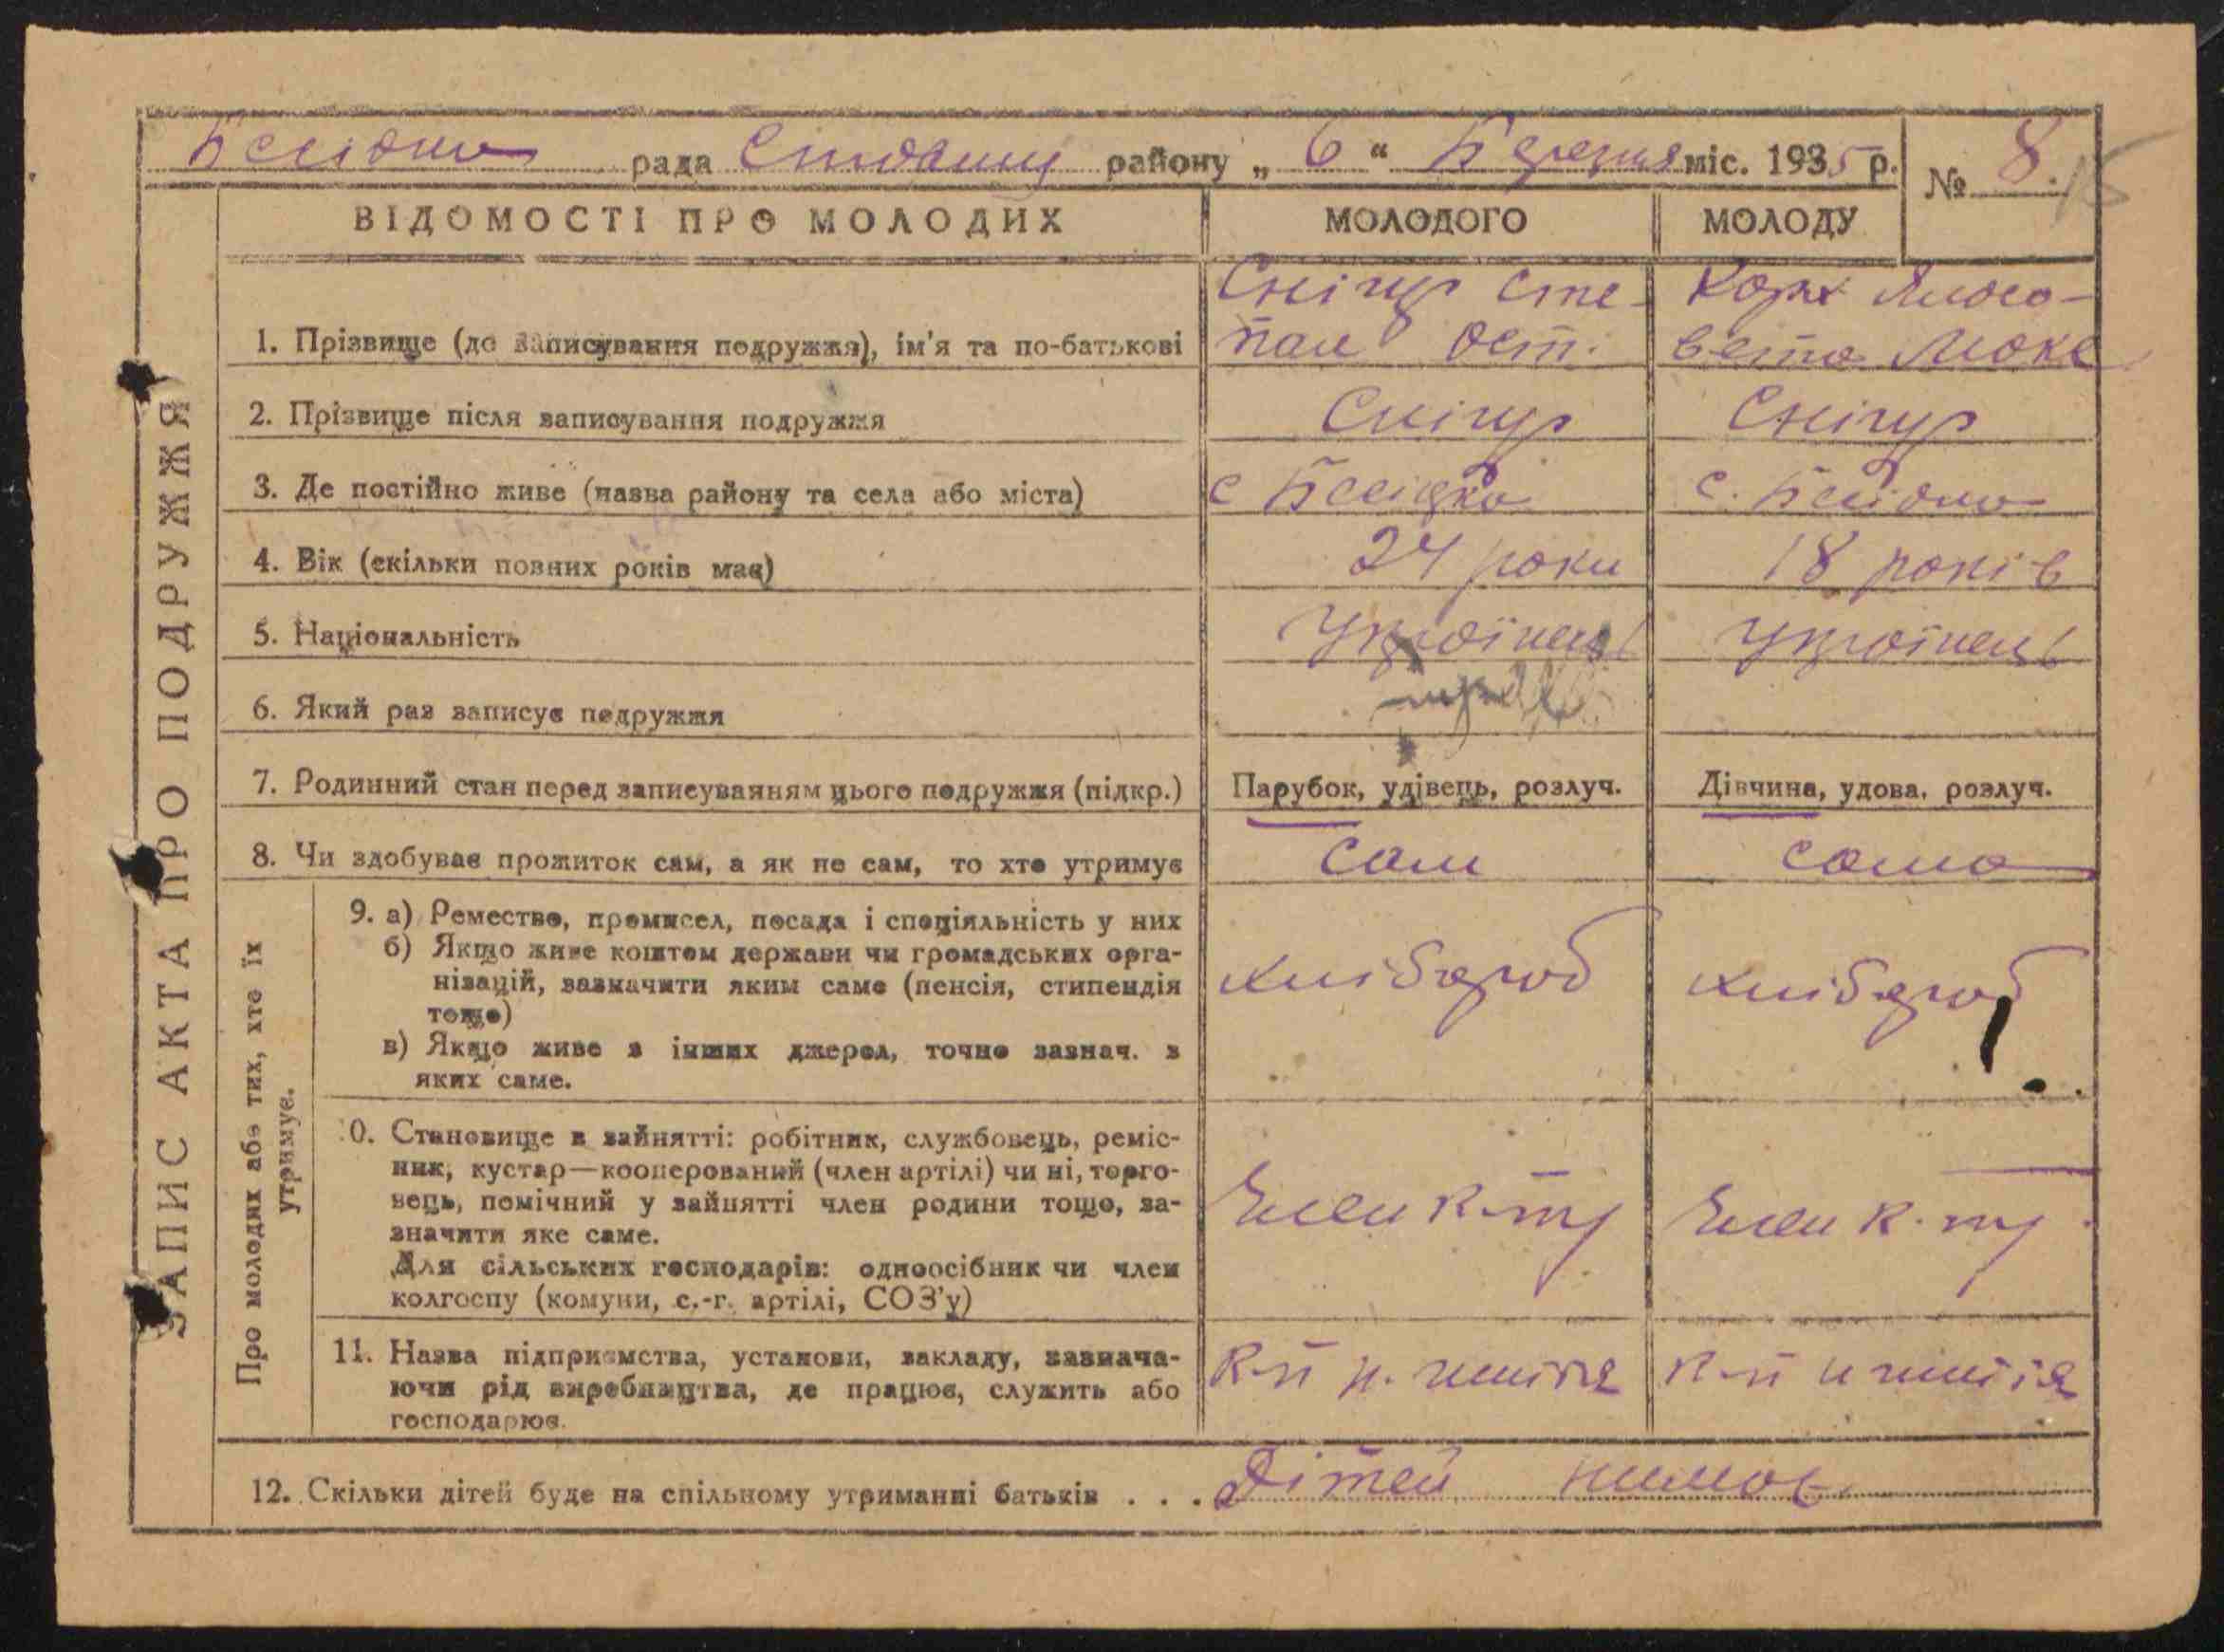 рада району „ 6 “ Березня міс. 1935 р.
№ 8.
ВІДОМОСТІ ПРО МОЛОДИХ
МОЛОДОГО
МОЛОДУ
ЗАПИС АКТА ПРО ПОДРУЖЖЯ
1. Прізвище (до записування подружжя), ім'я та по-батькові
Снігур Сте-
пан Ост.
Корж Єлоса-
вета Мокс
2. Прізвище після записування подружжя
Снігур
Снігур
3. Де постійно живе (назва району та села або міста)
с
с.
4. Вік (скільки повних років має)
24 роки
18 років
5. Національність
Українець
Українець
6. Який раз записує подружжя
7. Родинний стан перед записуванням цього подружжя (підкр.)
Парубок, удівець, розлуч.
Дівчина, удова, розлуч.
8. Чи здобуває прожиток сам, а як не сам, то хто утримує
сам
сама
Про молодих або тих, хто їх
утримує.
9. а) Ремество, промисел, посада і спеціяльність у них
б) Якщо живе коштом держави чи громадських орга-
нізацій, зазначити яким саме (пенсія, стипендія
тощо)
в) Якщо живе з інших джерел, точно зазнач. з
яких саме.
хлібороб
хлібороб
0. Становище в зайнятті: робітник, службовець, реміс-
ник, кустар—кооперований (член артілі) чи ні, торго-
вець, помічний у зайнятті член родини тощо, за-
значити яке саме.
Для сільських господарів: одноосібник чи член
колгоспу (комуни, с.-г. артілі, СОЗ'у)
Член к-пу
Член к.-пу
11. Назва підприємства, установи, закладу, зазнача-
ючи рід виробництва, де працює, служить або
господарює.
к-п н. життя
к-п н життя
12. Скільки дітей буде на спільному утриманні батьків . . . Дітей нимає